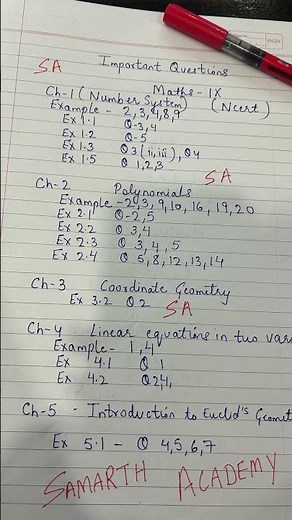 SA Important Questions
Maths - IX
Ch-1 (Number System) (Ncert)
Example - 2,3,4,8,9
Ex 1.1 Q-3,4
Ex 1.2 Q-5
Ex 1.3 Q3(ii,iii), Q4
Ex 1.5 Q 1,2,3
SA
Ch-2 Polynomials
Example -2,3,9,10,16,19,20
Ex 2.1 Q-2,5
Ex 2.2 Q 3,4
Ex 2.3 Q 3,4,5
Ex 2.4 Q 5,8,12,13,14
Ch-3 Coordinate Geometry
Ex 3.2 Q2 SA
Ch-4 Linear equations in two vari
Example- 1,4
Ex 4.1 Q 1
Ex 4.2
Ch-5 - Introduction to Euclid's Geomet
Ex 5.1 - Q 4,5,6,7
SAMARTH ACADEMY